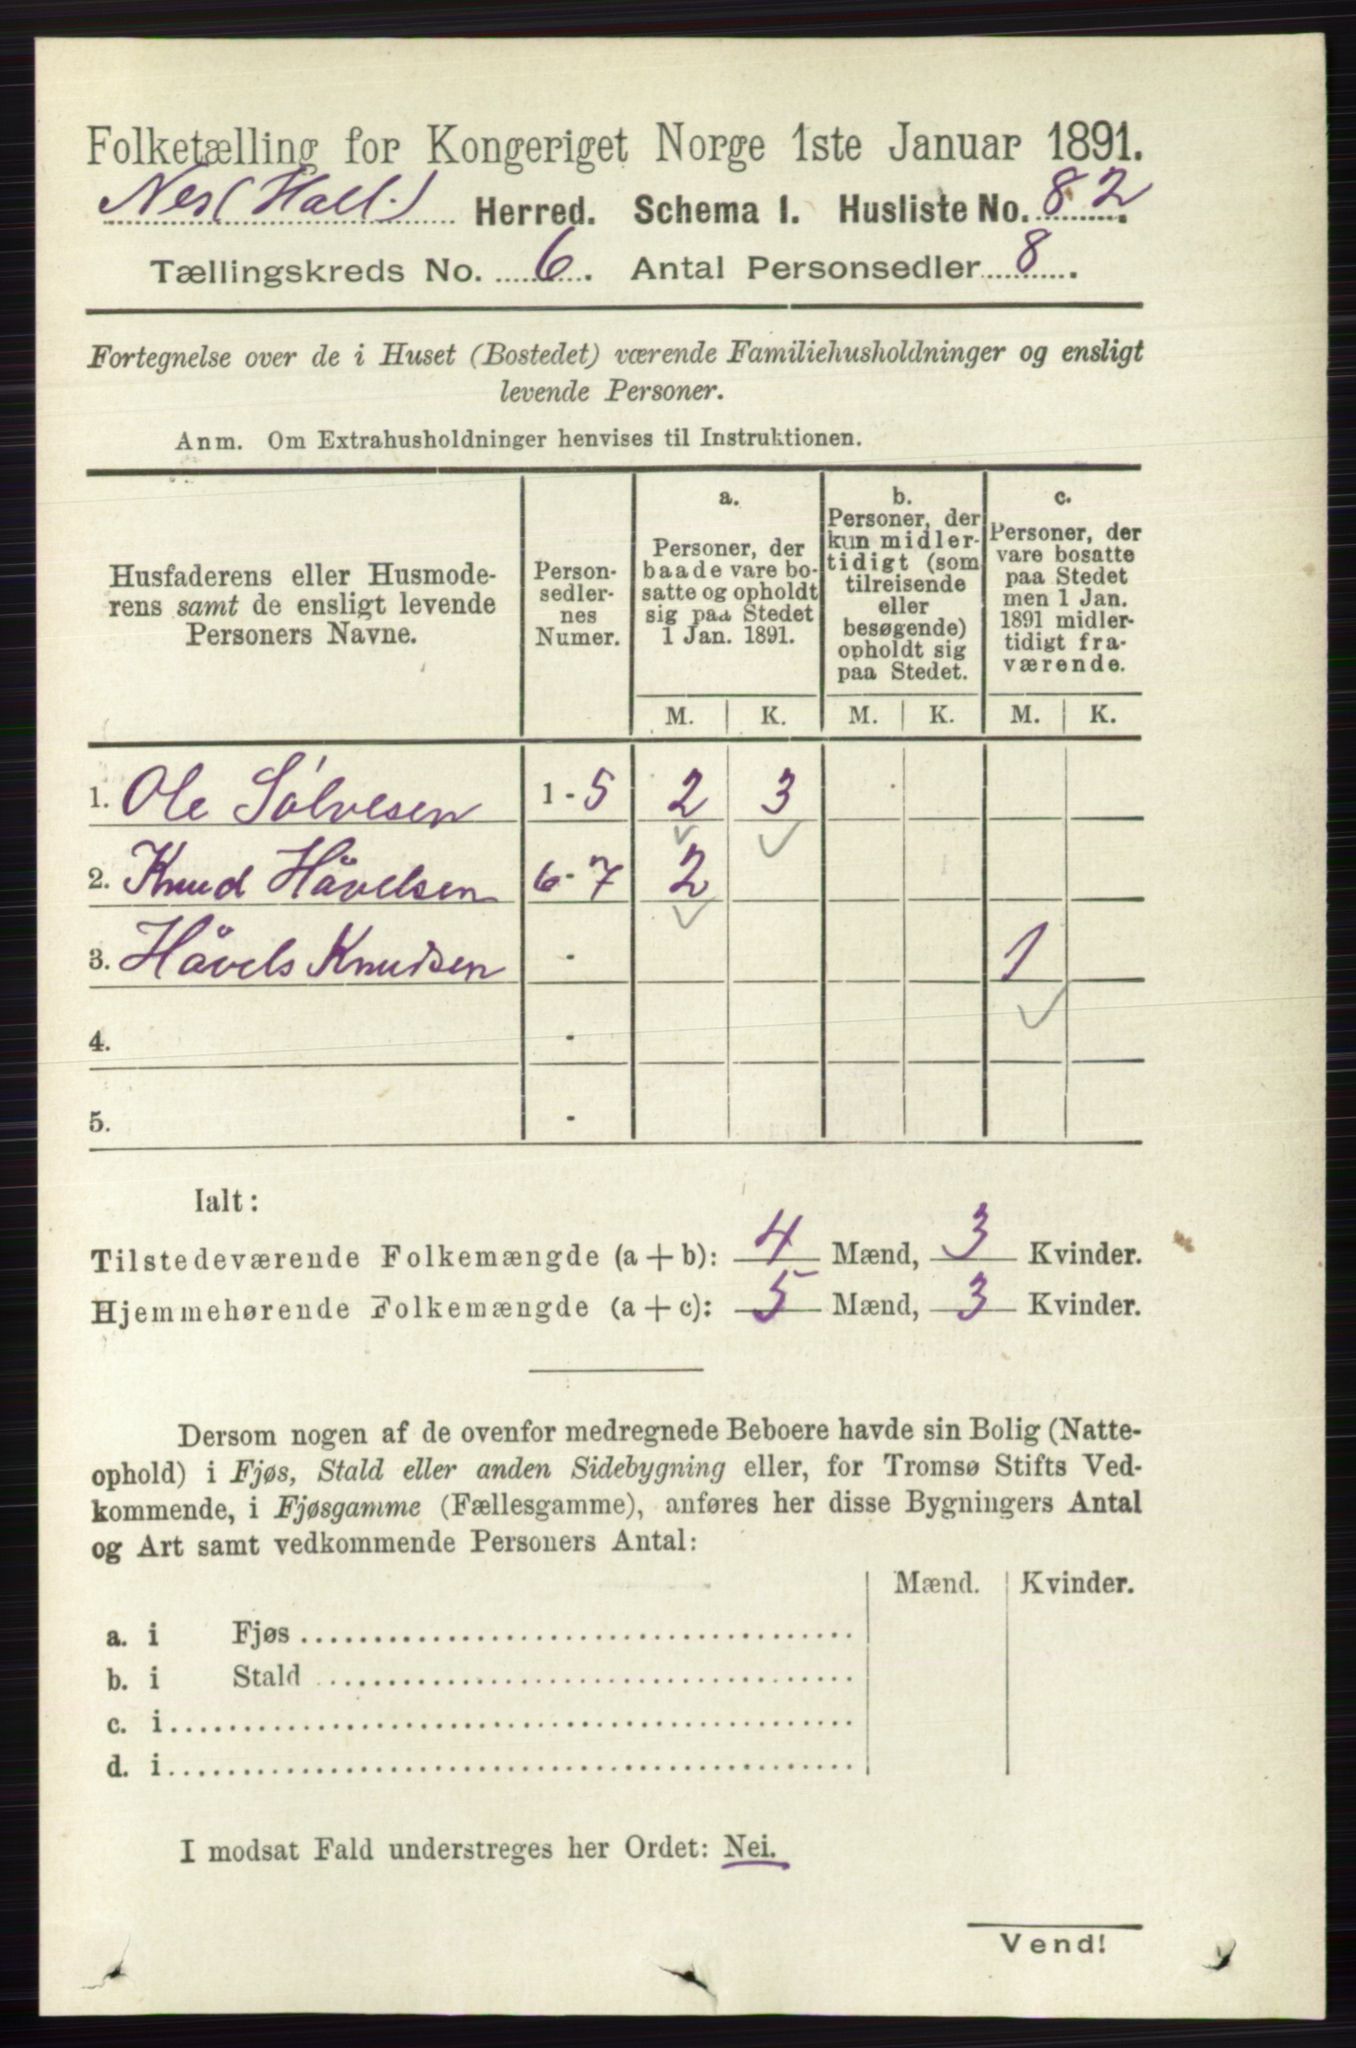 Folketælling for Kongeriget Norge 1ste Januar 1891.
Nes (Hall.) Herred. Schema 1. Husliste No. 82.
Tællingskreds No. 6. Antal Personsedler 8.
Fortegnelse over de i Huset (Bostedet) værende Familiehusholdninger og ensligt
levende Personer.
Anm. Om Extrahusholdninger henvises til Instruktionen.
Husfaderens eller Husmode-
rens samt de ensligt levende
Personers Navne.
Person-
sedler-
nes
Numer.
a.
Personer, der
baade vare bo-
satte og opholdt
sig paa Stedet
1 Jan. 1891.
b.
Personer, der
kun midler-
tidigt (som
tilreisende
eller
besøgende)
opholdt sig
paa Stedet.
c.
Personer, der
vare bosatte
paa Stedet
men 1 Jan.
1891 midler-
tidigt fra-
værende.
M. K. M. K. M. K.
1. Ole Sólvesen 1 - 5 2 3
2. Knud Håvelsen 6 - 7 2
3. Håvels Knudsen - 1
4. -
5. -
Ialt:
Tilstedeværende Folkemængde (a + b): 4 Mænd, 3 Kvinder.
Hjemmehørende Folkemængde (a + c): 5 Mænd, 3 Kvinder.
Dersom nogen af de ovenfor medregnede Beboere havde sin Bolig (Natte-
ophold) i Fjøs, Stald eller anden Sidebygning eller, for Tromsø Stifts Ved-
kommende, i Fjøsgamme (Fællesgamme), anføres her disse Bygningers Antal
og Art samt vedkommende Personers Antal:
Mænd. Kvinder.
a. i Fjøs
b. i Stald
c. i
d. i
I modsat Fald understreges her Ordet: Nei.
Vend!